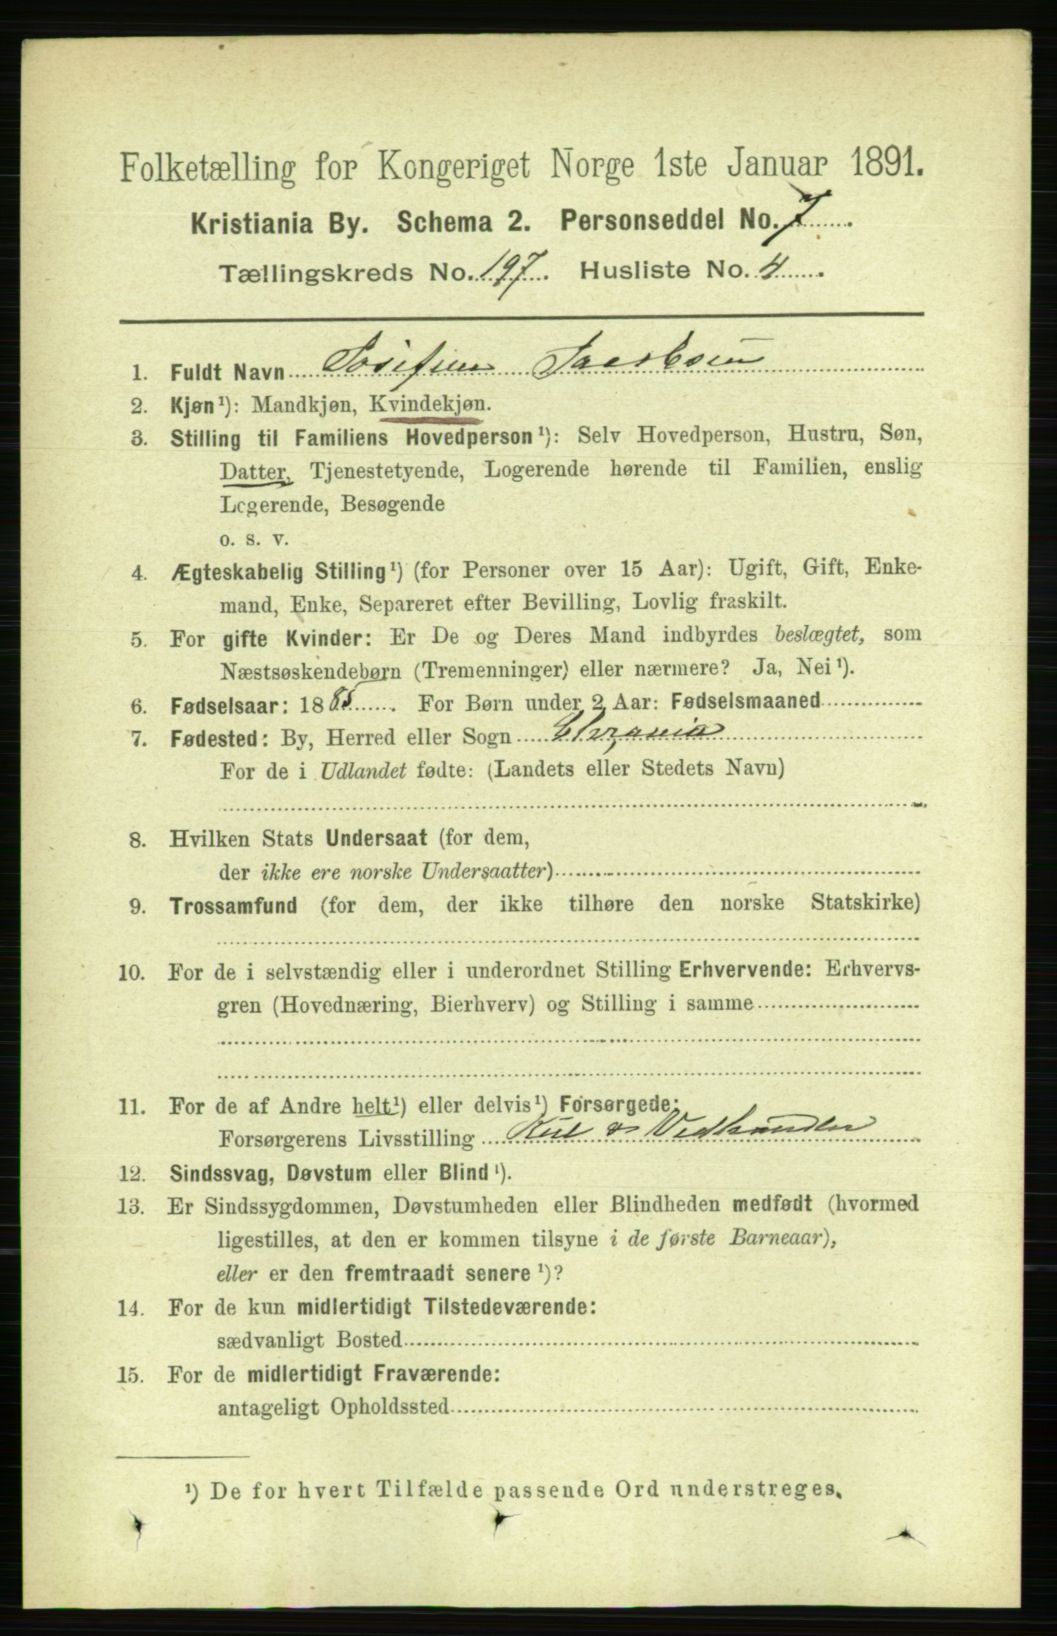 Folketælling for Kongeriget Norge 1ste Januar 1891.
Kristiania By. Schema 2. Personseddel No. 7
Tællingskreds No. 197. Husliste No. 4
1. Fuldt Navn Josefine Jacobsen
2. Kjøn¹): Mandkjøn, Kvindekjøn.
3. Stilling til Familiens Hovedperson¹): Selv Hovedperson, Hustru, Søn,
Datter, Tjenestetyende, Logerende hørende til Familien, enslig
Logerende, Besøgende
o. s. v.
4. Ægteskabelig Stilling¹) (for Personer over 15 Aar): Ugift, Gift, Enke-
mand, Enke, Separeret efter Bevilling, Lovlig fraskilt.
5. For gifte Kvinder: Er De og Deres Mand indbyrdes beslægtet, som
Næstsøskendebørn (Tremenninger) eller nærmere? Ja, Nei¹).
6. Fødselsaar: 1885. For Børn under 2 Aar: Fødselsmaaned
7. Fødested: By, Herred eller Sogn Chrania
For de i Udlandet fødte: (Landets eller Stedets Navn)
8. Hvilken Stats Undersaat (for dem,
der ikke ere norske Undersaatter)
9. Trossamfund (for dem, der ikke tilhøre den norske Statskirke)
10. For de i selvstændig eller i underordnet Stilling Erhvervende: Erhvervs-
gren (Hovednæring, Bierhverv) og Stilling i samme
11. For de af Andre helt¹) eller delvis¹) Forsørgede:
Forsørgerens Livsstilling Kul & Vedhandler
12. Sindssvag, Døvstum eller Blind¹).
13. Er Sindssygdommen, Døvstumheden eller Blindheden medfødt (hvormed
ligestilles, at den er kommen tilsyne i de første Barneaar),
eller er den fremtraadt senere¹)?
14. For de kun midlertidigt Tilstedeværende:
sædvanligt Bosted
15. For de midlertidigt Fraværende:
antageligt Opholdssted
¹) De for hvert Tilfælde passende Ord understreges.